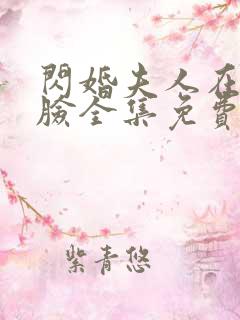 閃婚夫人在
臉全集免費
紫青悠